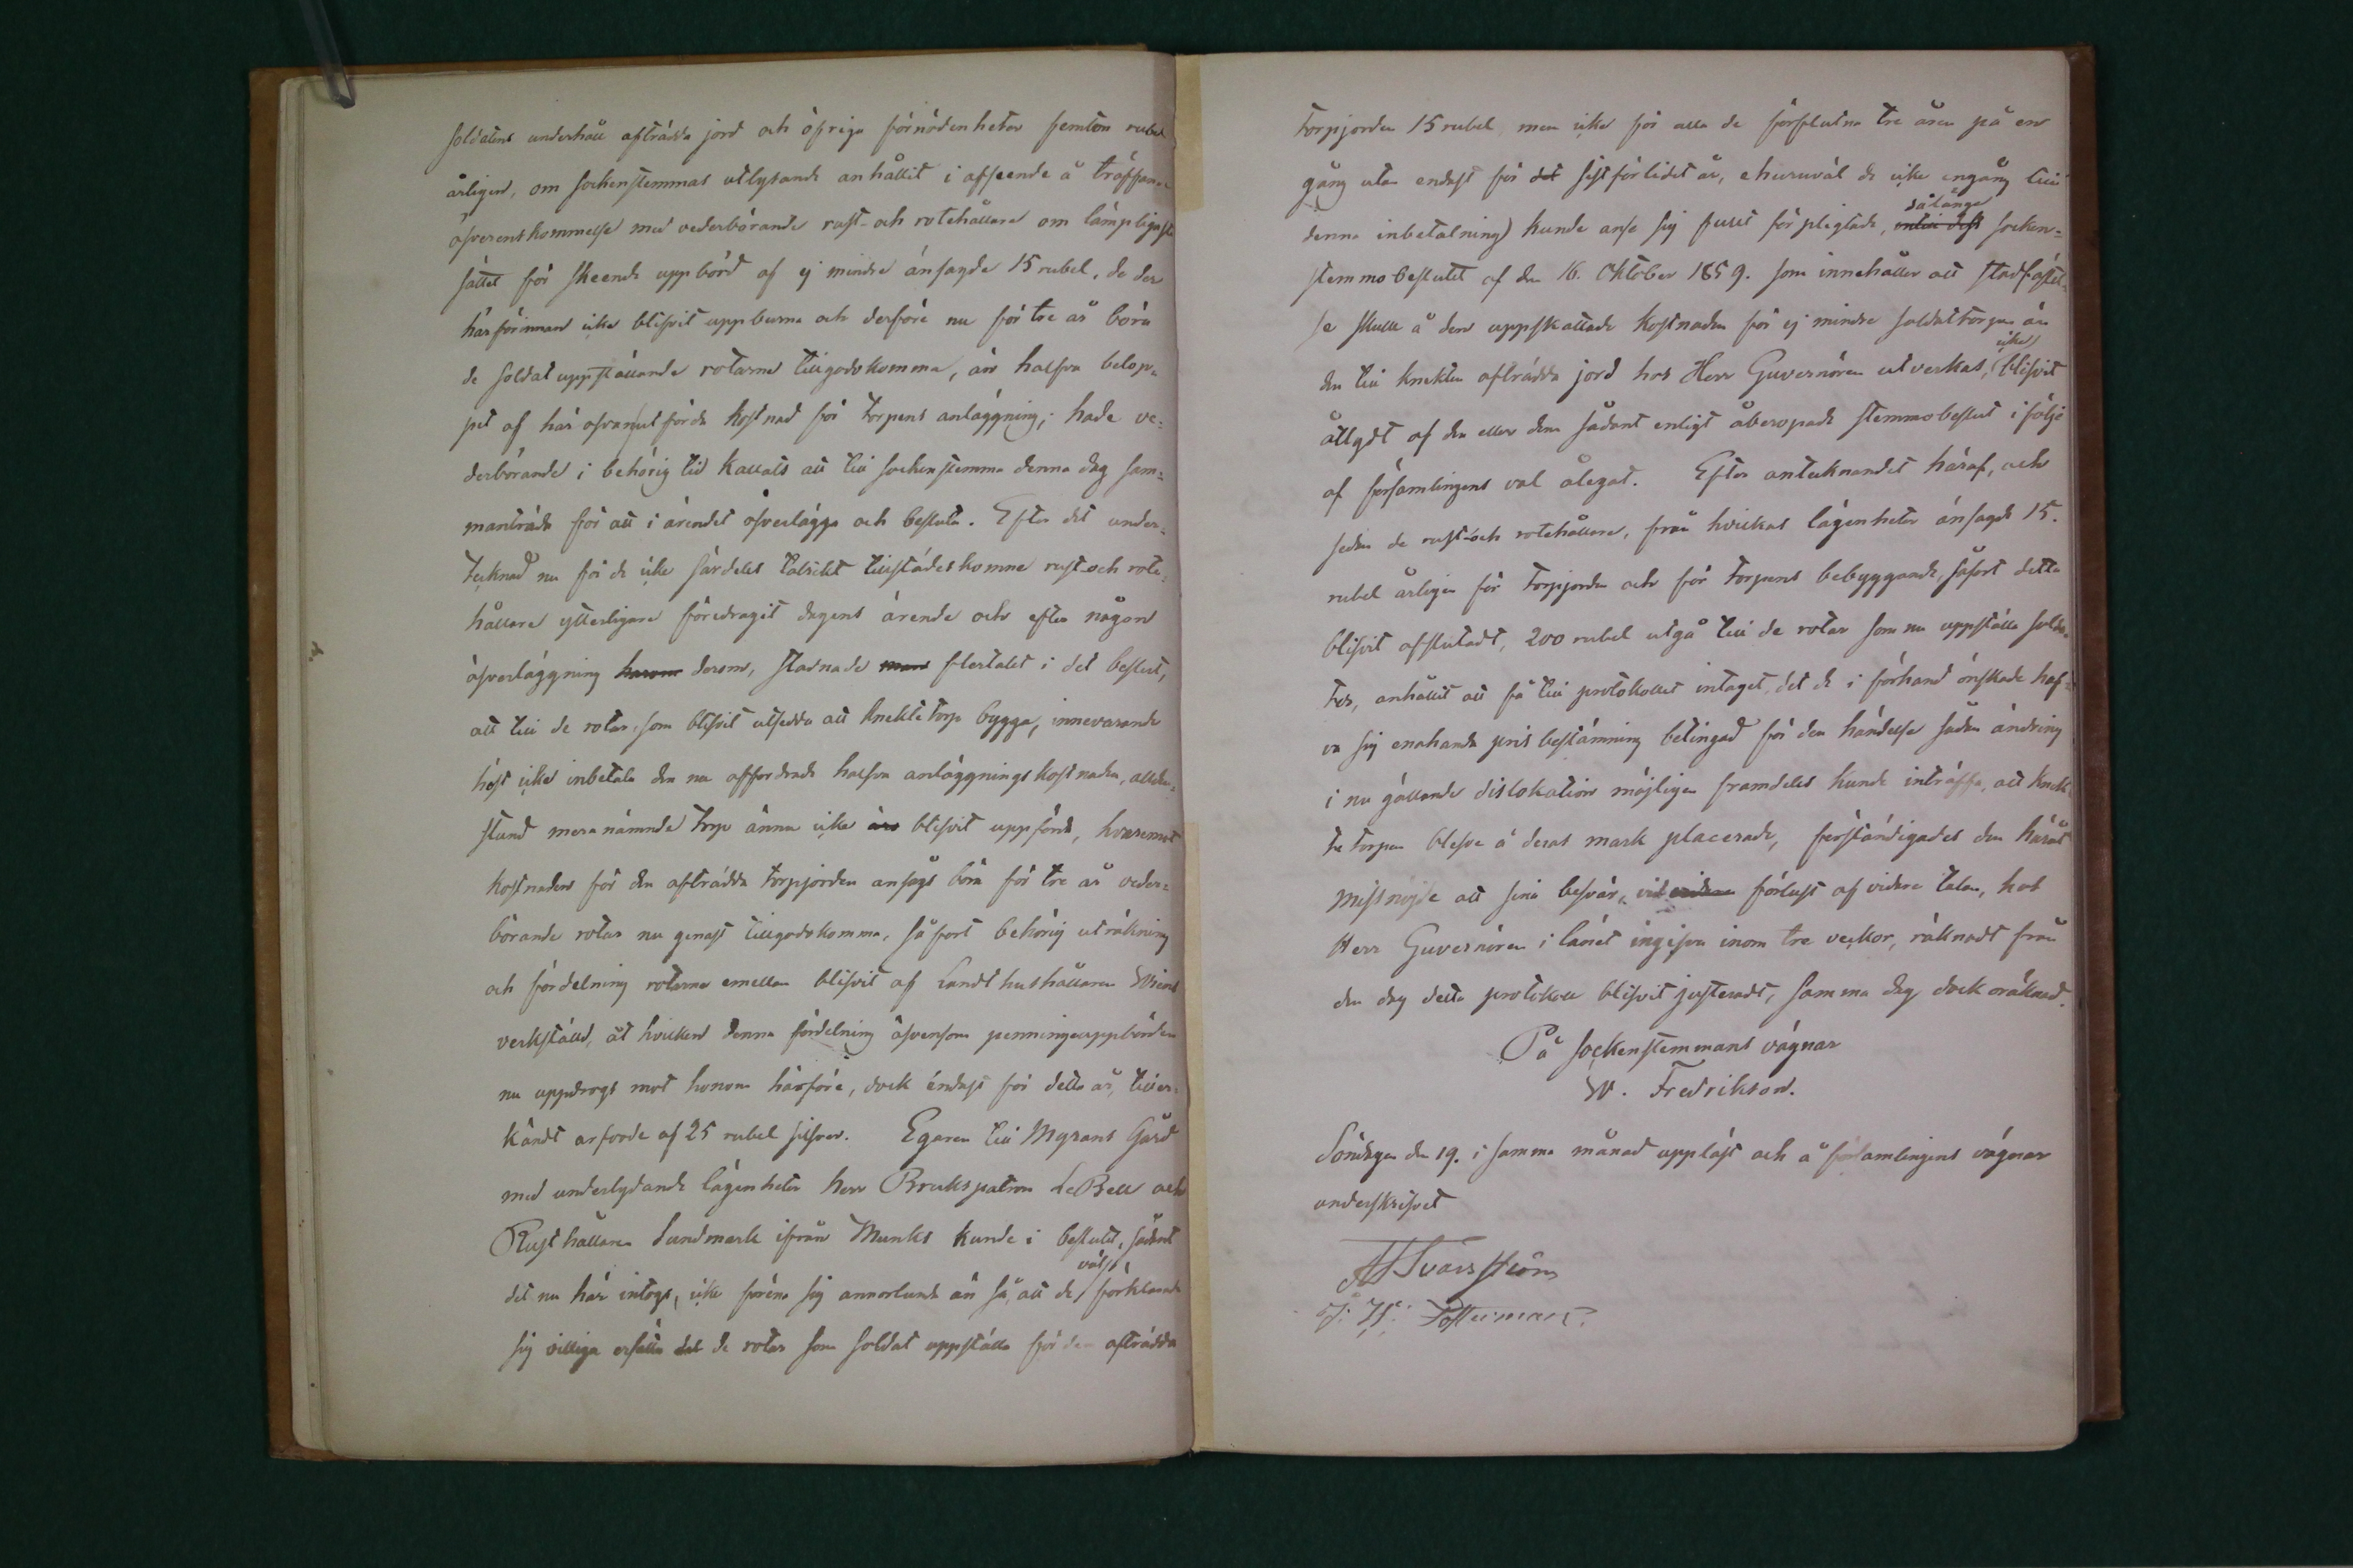 soldatens underhåll afträdda jord och öfriga förnödenheter femton rubel
årligen, om sockenstemmas utlysande anhållit i afseende å träffande
öfverenskommelse med vederbörande rust- och rotehållare om lämpligaste
sättet för skeende uppbörd af ej mindre änsagde 15 rubel, de der
härförinnan icke blifvit uppburna och derföre nu för tre år böra
de soldat uppställande rotarne tillgodokomma, än halfva belop-
pet af här ofvanutförda kostnad för torpens anläggning; hade ve-
derbörande i behörig tid kallats att till sockenstemma denna dag sam-
manträda för att i ärendet öfverlägga och besluta. Efter det under-
tecknad nu för de icke särdeles talrikt tillstädeskomne rust- och rote-
hållare ytterligare föredragit dagens ärende och efter någon
öfverläggning harom derom, stadnade man flertalet i det beslut,
att till de rotar, som blifvit utsedda att knektetorp bygga, innevarande
höst icke inbetala den nu affordrade halfva anläggningskostnaden, allden-
stund meranämnde torp ännu icke äro blifvit uppförde, hvaremot
kostnaden för den afträdda torpjorden ansågs böra för tre år veder-
börande rotar nu genast tillgodokomma, så fort behörig uträkning
och fördelning rotarne emellan blifvit af Landthushållaren
verkställd, åt hvilken denna fördelning äfvensom penningeuppbörden
nu uppdrogs mot honom härföre, dock endast för detta år, tiller-
kändt arfvode af 25 rubel silfver. Egaren till Myrans Gård
med underlydande lägenheter herr Brukspatron LeBell och
Rusthållaren Lundmark ifrån Munks kunde i beslutet, sådant
det nu här intogs, icke förena sig annorlunda än så, att de väl förklarade
sig villiga ersätta det de rotar som soldat uppställa för den afträdda
torpjorden 15 rubel, men icke för alla de förflutna tre åren på en
gång utan endast för det sistförlidet år, ehuruväl de icke engång till
denna inbetalning) kunde anse sig fullt förpligtade, intill dess sålänge socken-
stemmobeslutet af den 16. Oktober 1859. som innehåller att stadfästel-
se skulle å den uppskattade kostnaden för ej mindre soldattorpen än
den till knekten afträdda jord hos Herr Guvernören utverkas, icke blifvit
åtlydt af den eller dem sådant enligt åberopade stemmobeslut i följe
af församlingens val ålegat. Efter antecknandet häraf, och
sedan de rust- och rotehållare, från hvilkas lägenheter änsagde 15.
rubel årligen för torpjorden och för torpens bebyggande, såfort detta
blifvit afslutadt, 200 rubel utgå till de rotar som nu uppställa solda-
ter, anhållit att få till protokollet intaget, det de i förhand önskade haf-
va sig enahanda pris bestämning betingad för den händelse sådan ändring
i nu gällande dislokation möjligen framdeles kunde inträffa, att knek-
te torpen blefve å deras mark placerade, förständigades den häröfver
missnöjde att sina besvär, vid vidare förlust af vidare talan, hos
Herr Guvernören i länet ingifva inom tre veckor, räknadt från
den dag detta protokoll blifvit justeradt, samma dag dock oräknad.
På sockenstemmans vägnar
W. Fredrikson.
Söndagen den 19. i samma månad uppläst och å församlingens vägnar
underskrifvet